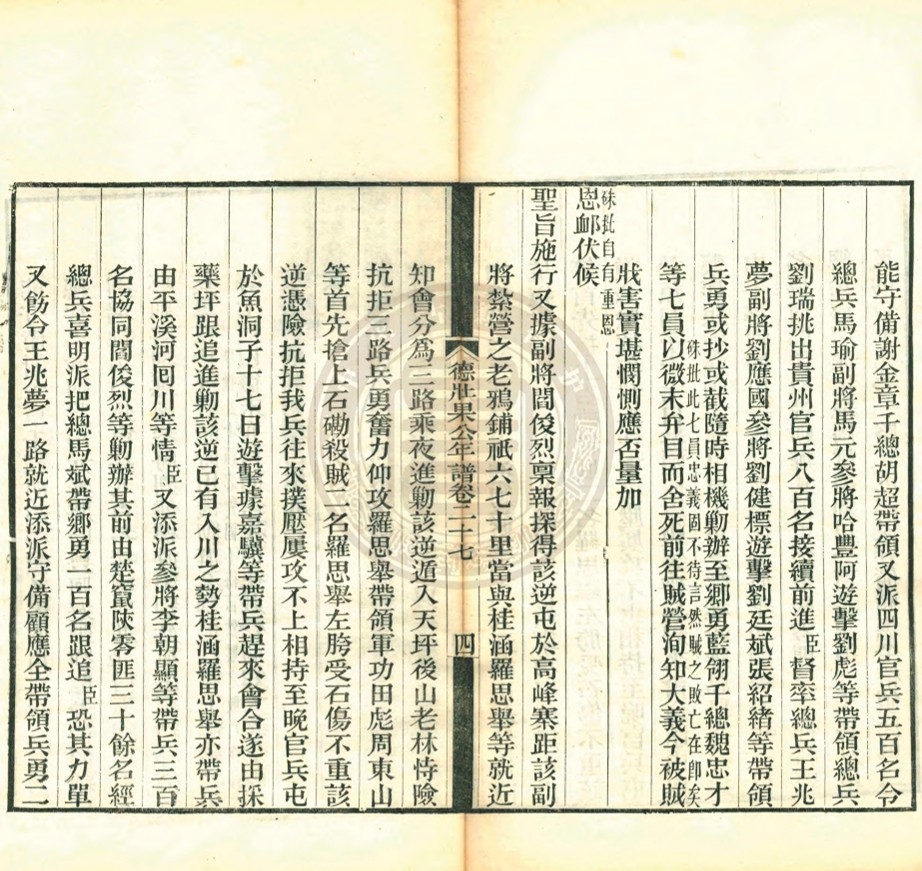 能守備謝金章千總胡超帶領又派四川官兵五百名令
總兵馬瑜副將馬元參將哈豐阿遊擊劉彪等帶領總兵
劉瑞挑出貴州官兵八百名接續前進臣督率總兵王兆
夢副將劉應國參將劉健標遊擊劉廷斌張紹緒等帶領
兵勇或抄或截隨時相機勦辦至鄉勇藍翎千總魏忠才
硃批此七員忠義固不待言然賊之敗亡在即矣
等七員以微末弁目而舍死前往賊營洵知大義今被賊
戕害實堪憫惻應否量加
硃批自有重恩
恩䘏伏候
聖旨施行又據副將閻俊烈稟報探得該逆屯於高峰寨距該副
將紮營之老鴉鋪祇六七十里當與桂涵羅思舉等就近
德壯果公年譜卷二十七 四
知會分爲三路乘夜進勦該逆遁入天坪後山老林恃險
抗拒三路兵勇奮力仰攻羅思舉帶領軍功田彪周東山
等首先搶上石磡殺賊二名羅思舉左胯受石傷不重該
逆憑險抗拒我兵往來撲壓屢攻不上相持至晚官兵屯
於魚洞子十七日遊擊璩嘉驥等帶兵趕來會合遂由採
藥坪跟追進勦該逆已有入川之勢桂涵羅思舉亦帶兵
由平溪河囘川等情臣又添派參將李朝顯等帶兵三百
名協同閻俊烈等勦辦其前由楚竄陝零匪三十餘名經
總兵喜明派把總馬斌帶鄉勇一百名跟追臣恐其力單
又飭令王兆夢一路就近添派守備顧應全帶領兵勇二